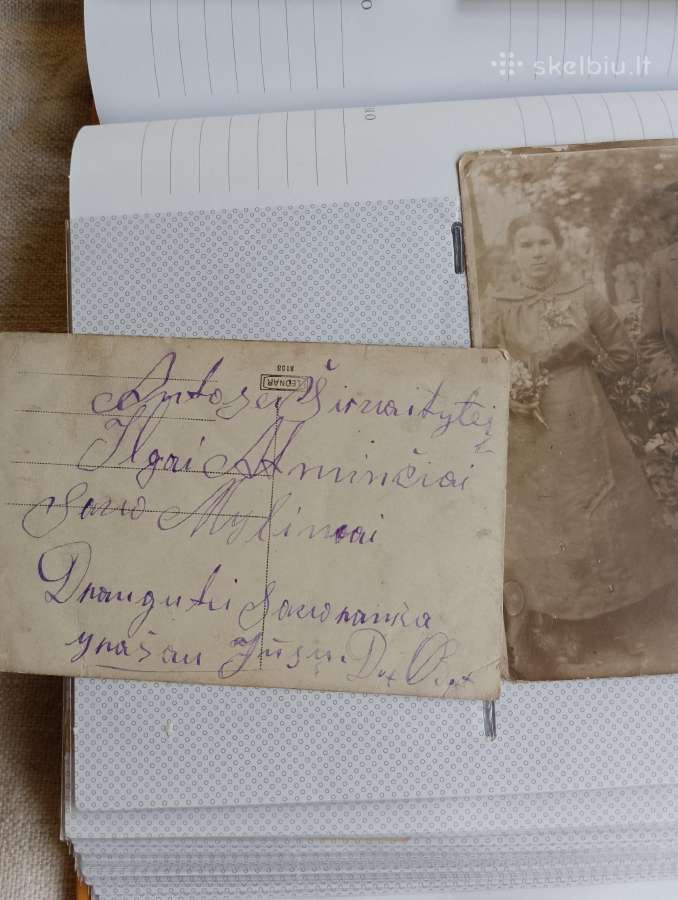 skelbiu.lt
LEONAR
8158
Antosei Širvaitytei
Ilgai Atminčiai
Savo Mylimai
Draugutei savo ranka
yrašau Jūsų. D.